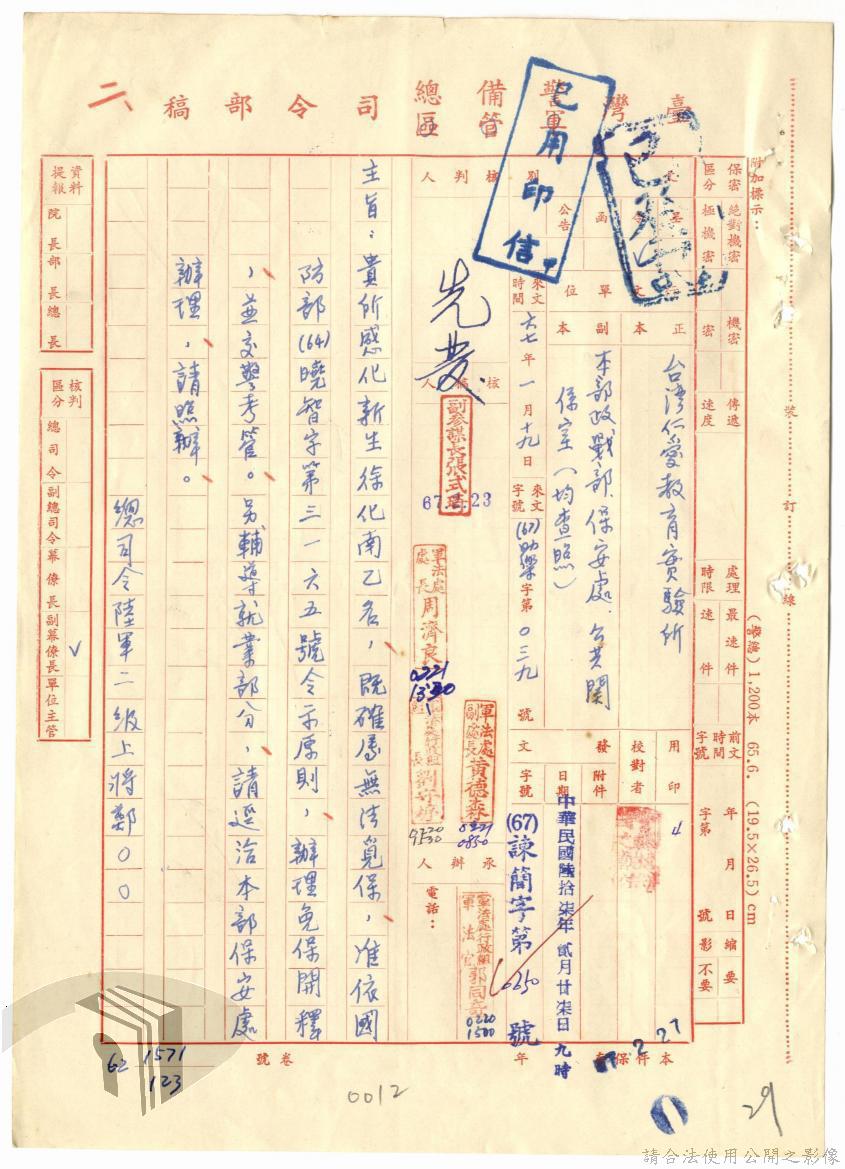 臺灣警備總司令部稿
軍管區
二、
已用印信
附加標示：
裝訂線
保密區分
絕對機密
極機密
機密
密
傳遞速度
處理時限
最速件
速件
前文時間字號
年月日
字第
號
縮影
要
不要
(警論) 1,200本 65.6. (19.5×26.5) cm
受文單位
正本
台灣仁愛教育實驗所
副本
本部政戰部、保安處、
保室（均查照）
函
公告
來文時間
六七年一月十九日
來文字號
(67)
字第〇三九號
用印
校對者
發文
附件
日期
中華民國陸拾柒年貳月廿柒日九時
字號
(67)諫簡字第0650號
判核人
先發
核稿人
副參謀長張式琦
67.2.23
軍法處處長周濟良
0221
軍法處副處長黃德森
0221
0850
承辦人
軍法處行政組
軍法官郭同奇
0220
1500
電話：
主旨：貴所感化新生徐化南乙名，既確屬無法覓保，准依國
防部(64)曉智字第三一六五號令示原則，辦理免保開釋
，並交警考管。另輔導就業部分，請逕洽本部保安處
辦理，請照辦。
總司令陸軍二級上將鄭〇〇
資料提報
院長
部長
總長
核判區分
總司令
副總司令
幕僚長
副幕僚長
單位主管
本件保存
年
卷號
62 1571
123
0012
29
請合法使用公開之影像